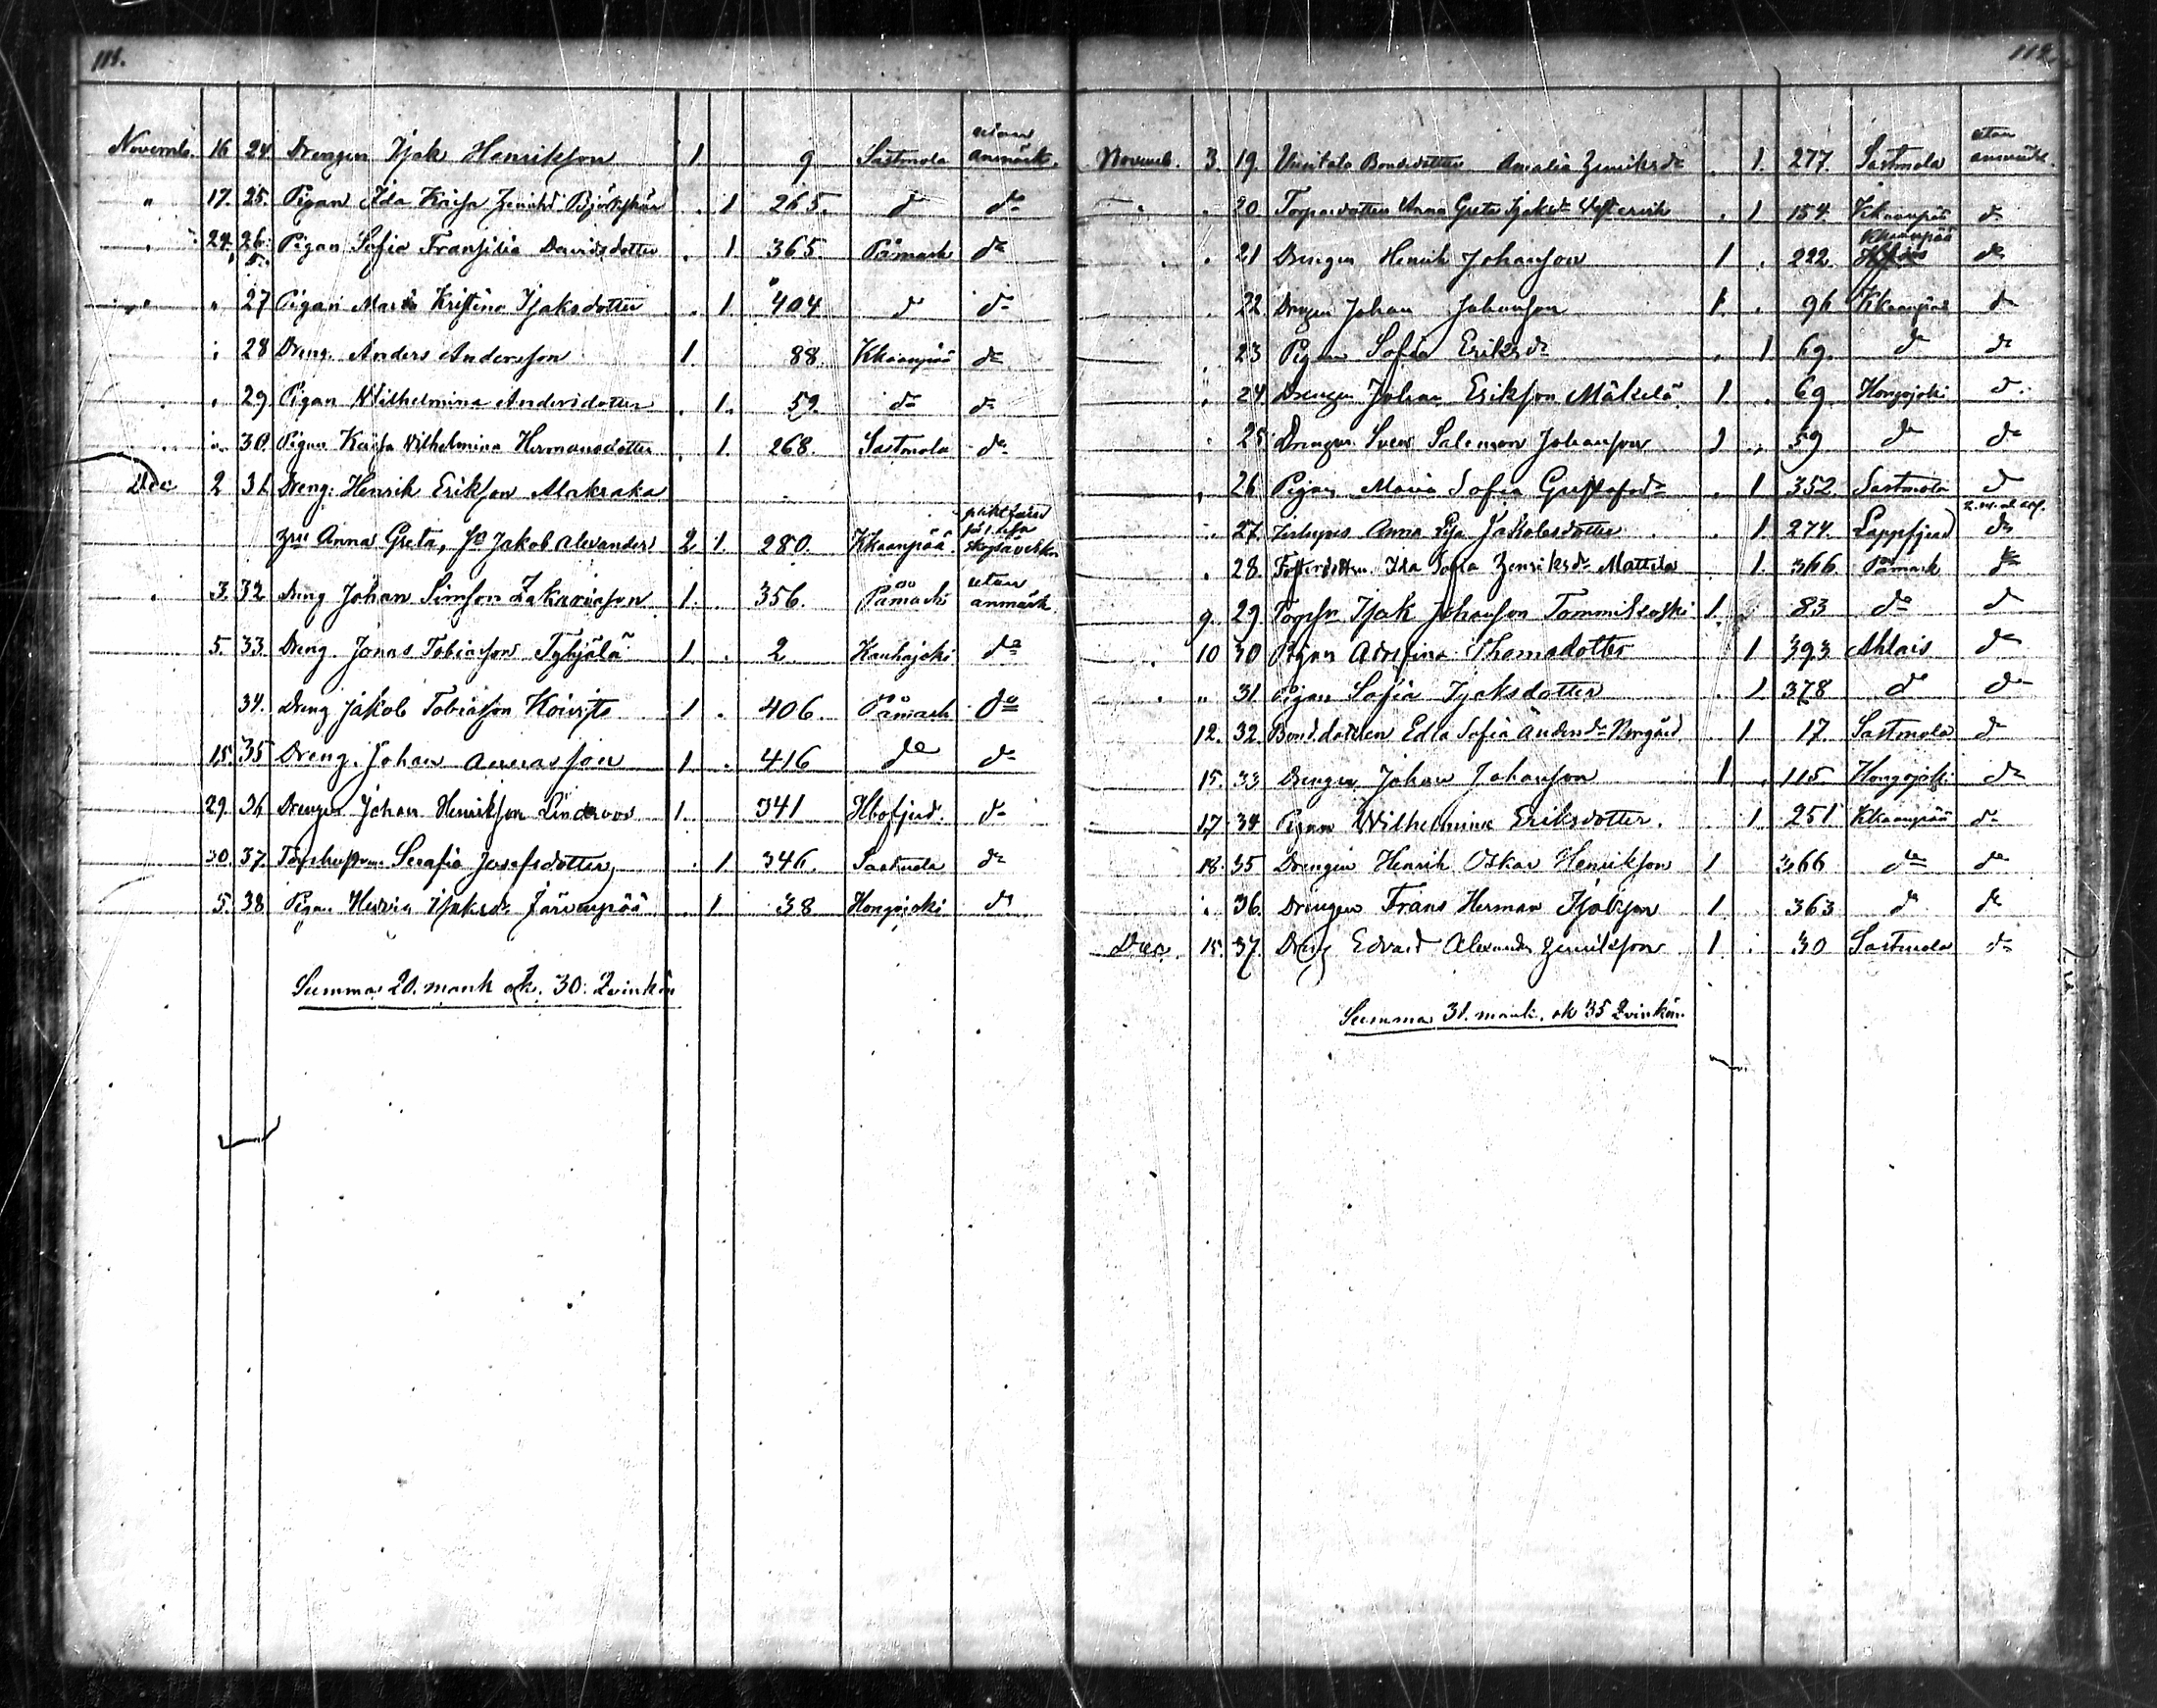 111.
Novemb. 16 24 Drengen Isak Henrikson 1 9 Sastmola utan anmärk.
" 17. 25. Pigan Ida Kaisa Henriksd Björkskär . 1 265. do do
" 24. 26. Pigan Sofia Fransilia Davidsdotter . 1 365 Påmark do
" " 27 Pigan Maria Kristina Isaksdotter . 1. 404 do do
" 28 Dreng. Anders Andersson 1 88. Kkaanpää do
" 29 Pigan Wilhelmina Andersdotter . 1. 59. do do
" 30 Pigan Kaisa Wilhelmina Hermansdotter . 1. 268. Sastmola do
Dec 2 31. Dreng. Henrik Erikson
Anna Greta, Jakob Alexander 2 1. 280. Kkaanpää
3. 32 Dreng Johan Simson Zakariason 1. 356. Påmark utan anmärk.
5. 33 Dreng. Jonas Tobiasson Tyhjälä 1 . 2. Kauhajoki do
34. Dreng Jakob Tobiasson Koivisto 1 . 406. Påmark do
15. 35 Dreng. Johan 1 . 416 do do
29. 36 Drengen Johan Henrikson Lindroos 1. 341 do
30. 37. Serafia Josefsdotter . 1. 346. Sastmola do
5. 38 Pigan Hedvig Isaksdr Järvenpää . 1 38 Hongojoki do
Summa 20. mank ok. 30. Qvinkön
112
Novemb. 3. 19. Uusitalo Bondedotter Amalia Henriksdr . 1. 277. Sastmola utan anmärk.
. 20 Torparedotter Anna Greta Isaksdr . 1 154. Kkaanpää do
. 21 Drengen Henrik Johanson 1 . 222. Kkaanpää do
. 22. Drengen Johan Johanson 1. . 96 Kkaanpää do
. 23 Pigan Sofia Eriksdr . 1 69. do do
. 24. Drengen Johan Erikson Mäkelä 1. . 69 Hongojoki do
. 25 Drengen Sven Salomon Johanson 1 . 59 do do
. 26 Pigan Maria Sofia Gustafsdr . 1 352. Sastmola do
. 27. Anna Lisa Jakobsdotter . 1. 274. Lappfjerd do
. 28. Ida Sofia Henriksdr Mattila 1. 366 Påmark do
9. 29. Isak Johanson Tommikoski 1. 83 do do
10 30 Pigan Adolfina Thomasdotter 1 393 Ahlais do
" 31. Pigan Sofia Isaksdotter . 1 378 do do
12. 32. Bondedotter Edla Sofia Andersdr Norrgård 1 17. Sastmola do
15. 33 Drengen Johan Johanson 1. . 115 Hongojoki do
17 34 Pigan Wilhelmina Eriksdotter. 1 251 Kkaanpää do
18. 35 Drengen Henrik Oskar Henrikson 1 366 do do
. 36. Drengen Frans Herman Isakson 1. 363 do do
Dec. 15. 37. Dreng Edvard Alexander Henrikson 1 . 30 Sastmola do
Summa 31. mank. ok 35 Qvinkön.